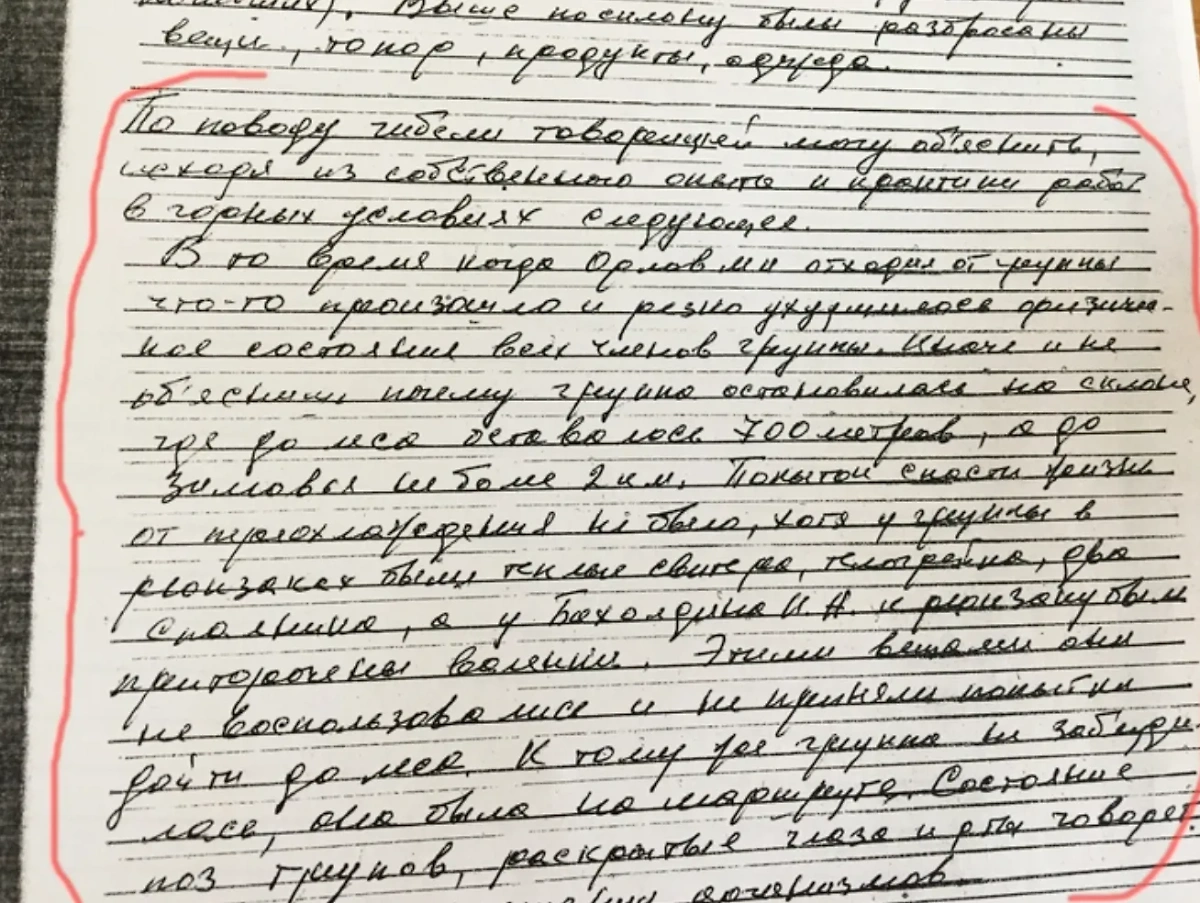 Выше по склону были разбросаны
вещи, топор, продукты, одежда.
По поводу гибели товарищей могу об'яснить,
исходя из собственного опыта и практики работ
в горных условиях следующее.
В то время когда Орлов ми отходил от группы
что-то произошло и резко ухудшилось физиче-
ное состояние всех членов группы. Иначе и не
об'ясним почему группа остановилась на склоне,
где до леса оставалось 700 метров, а до
Зимовья не боле 2 км. Попыток спасти жизнь
от переохлаждения не было, хотя у группы в
рюкзаках были теплые свитера, телогрейка, два
спальника, а у Бахолдина И. А. к рюкзаку были
приторочены валенки. Этими вещами они
не воспользовались и не приняли попытки
дойти до леса. К тому же группа не заблуди-
лась, она была на маршруте. Состояние
поз трупов, раскрытые глаза и рты говорет
организмов